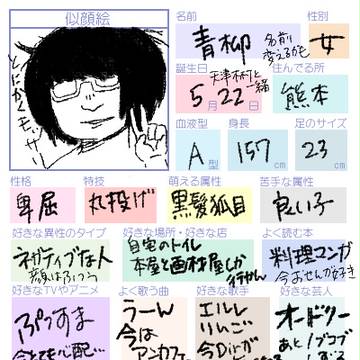 似顔絵
とにかくモッサ
名前
青柳
名前
変えるかも
性別
女
誕生日
5月22日
天津木村と
一緒
住んでる所
熊本
血液型
A型
身長
157cm
足のサイズ
23cm
性格
卑屈
特技
丸投げ
萌える属性
黒髪狐目
苦手な属性
良い子
好きな異性のタイプ
ネガティブな人
顔はふつう
好きな場所・好きな店
自宅のトイレ
本屋と画材屋しか
行かん
よく読む本
料理マンガ
今おせんが好き
好きなTVやアニメ
ぷっすま
今とても心配…
よく歌う曲
うーん
今は
アンカフェ
好きな歌手
エルレ
りんご
今Dirが
好きな芸人
オードリー
あと!ブコブ